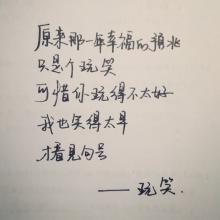 原来那一年幸福的预兆
只是个玩笑
可惜你玩得不太好
我也笑得太早
才看见句号
——玩笑.